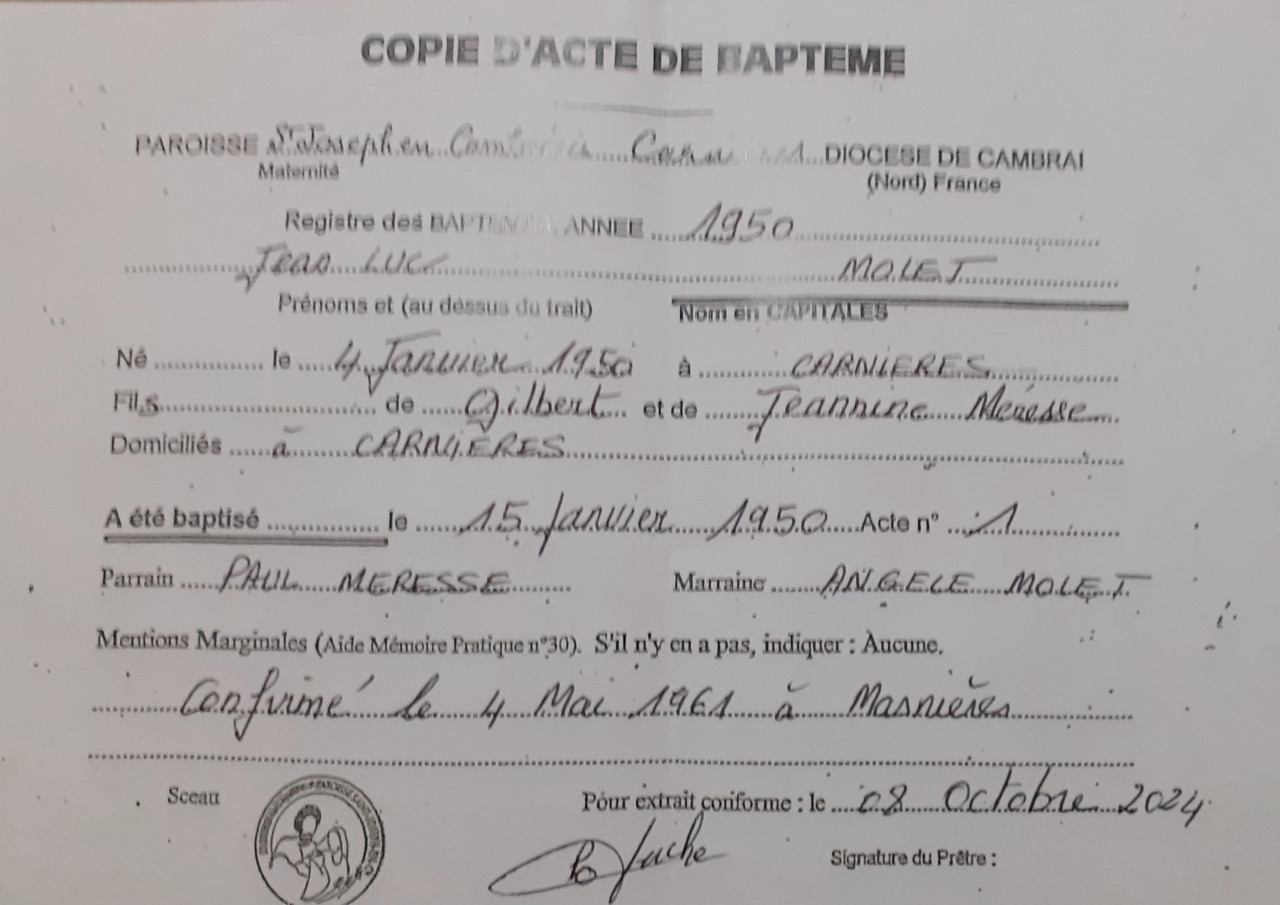 COPIE D'ACTE DE BAPTEME
PAROISSE St Joseph en Cambrésis DIOCESE DE CAMBRAI
Maternité (Nord) France
Registre des BAPTEMES ANNEE 1950
Jean Luc MOLET
Prénoms et (au dessus du trait) Nom en CAPITALES
Né le 4 Janvier 1950 à CARNIERES
Fils de Gilbert et de Jeannine Meresse
Domiciliés à CARNIERES
A été baptisé le 15 Janvier 1950 Acte n° 1
Parrain PAUL MERESSE Marraine ANGELE MOLET
Mentions Marginales (Aide Mémoire Pratique n°30). S'il n'y en a pas, indiquer : Aucune.
Confirmé le 4 Mai 1961 à Masnières
Sceau Pour extrait conforme : le 08 Octobre 2024
Signature du Prêtre :